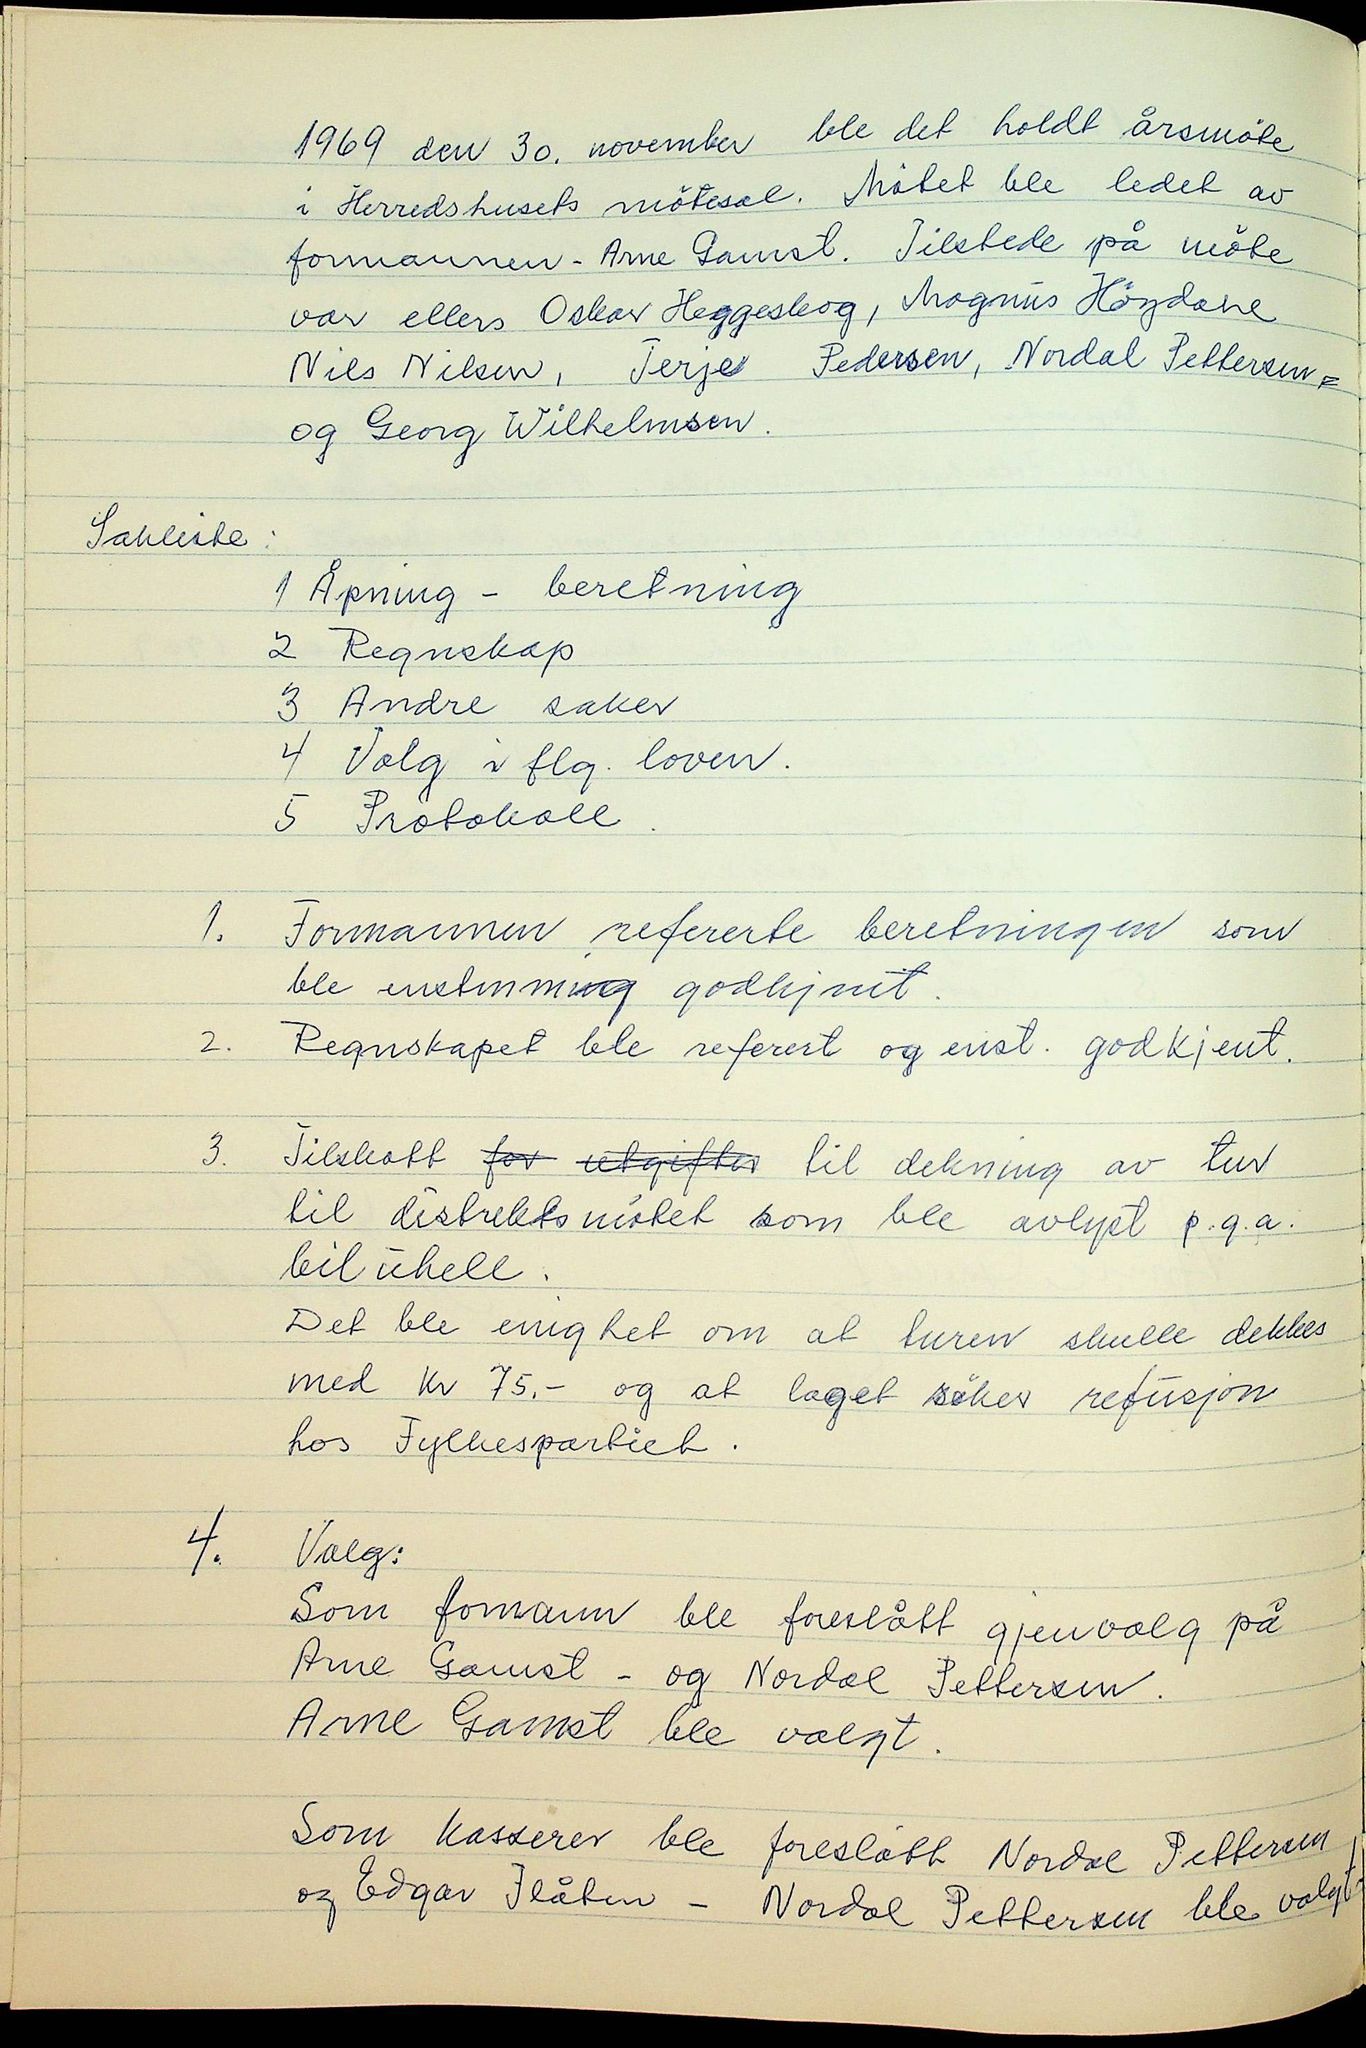 1969 den 30. november ble det holdt årsmöte
i Herredshusets mötesal. Mötet ble ledet av
formannen - Arne Gamst. Tilstede på möte
var ellers Oskar Heggeskog, Magnus Höydahl
Nils Nilsen, Terje Pedersen, Nordal Pettersen
og Georg Wilhelmsen.
Sakliste:
1 Åpning - beretning
2 Regnskap
3 Andre saker
4 Valg i flg. loven.
5 Protokoll.
1. Formannen refererte beretningen som
ble enstemmig godkjent.
2. Regnskapet ble referert og enst. godkjent.
3. Tilskott for utgifter til dekning av tur
til distriktsmötet som ble avlyst p.g.a.
biluhell.
Det ble enighet om at turen skulle dekkes
med kr 75.- og at laget söker refusjon
hos Fylkespartiet.
4. Valg:
Som formann ble foreslått gjenvalg på
Arne Gamst - og Nordal Pettersen.
Arne Gamst ble valgt.
Som kasserer ble foreslått Nordal Pettersen
og Edgar Flåten - Nordal Pettersen ble valgt.